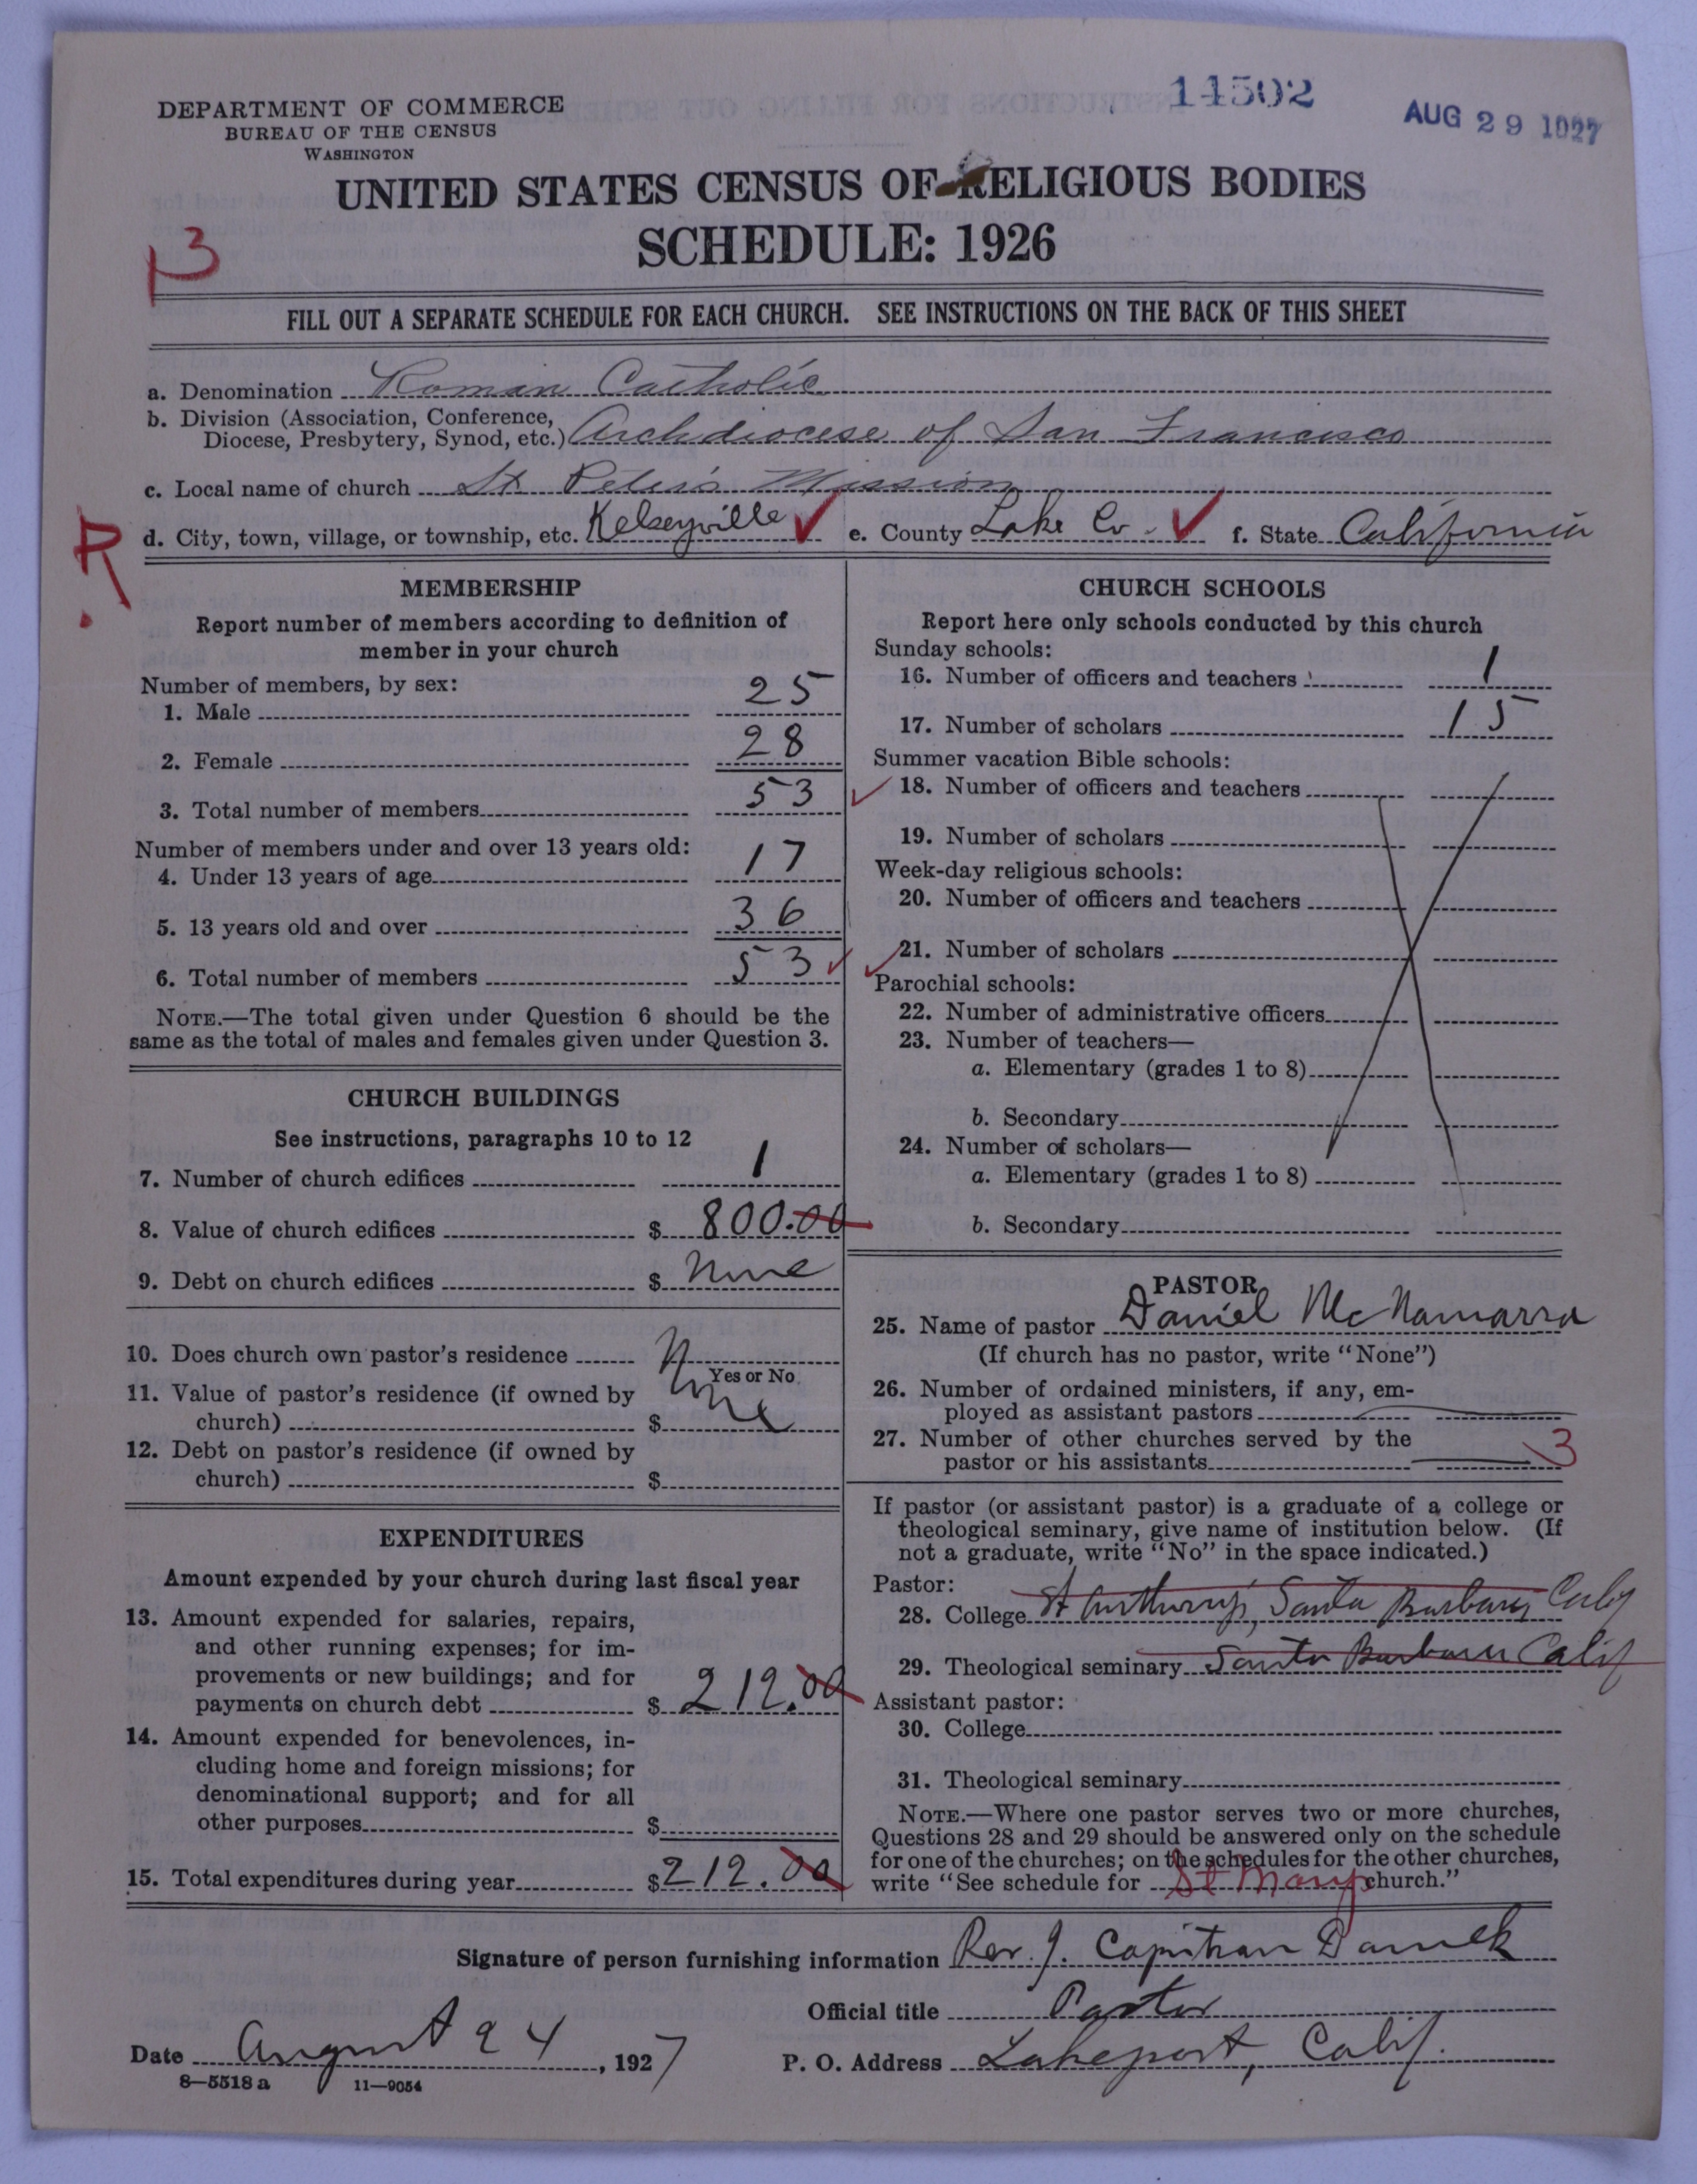 14502
AUG 29 1927
DEPARTMENT OF COMMERCE
BUREAU OF THE CENSUS
WASHINGTON
UNITED STATES CENSUS OF RELIGIOUS BODIES
SCHEDULE: 1926
13
FILL OUT A SEPARATE SCHEDULE FOR EACH CHURCH. SEE INSTRUCTIONS ON THE BACK OF THIS SHEET
a. Denomination Roman Catholic
b. Division (Association, Conference,
Diocese, Presbytery, Synod, etc.) Archdiocese of San Francisco
c. Local name of church St Peter's Mission
R
d. City, town, village, or township, etc. Kelseyville e. County Lake Co. f. State California
MEMBERSHIP
Report number of members according to definition of
member in your church
Number of members, by sex:
1. Male 25
2. Female 28
3. Total number of members 53
Number of members under and over 13 years old:
4. Under 13 years of age 17
5. 13 years old and over 36
6. Total number of members 53
NOTE.—The total given under Question 6 should be the
same as the total of males and females given under Question 3.
CHURCH BUILDINGS
See instructions, paragraphs 10 to 12
7. Number of church edifices 1
8. Value of church edifices $ 800.00
9. Debt on church edifices $ None
10. Does church own pastor's residence
Yes or No
11. Value of pastor's residence (if owned by
church) $
12. Debt on pastor's residence (if owned by
church) $
EXPENDITURES
Amount expended by your church during last fiscal year
13. Amount expended for salaries, repairs,
and other running expenses; for im-
provements or new buildings; and for
payments on church debt $ 212.00
14. Amount expended for benevolences, in-
cluding home and foreign missions; for
denominational support; and for all
other purposes $
15. Total expenditures during year $ 212.00
CHURCH SCHOOLS
Report here only schools conducted by this church
Sunday schools:
16. Number of officers and teachers 1
17. Number of scholars 15
Summer vacation Bible schools:
18. Number of officers and teachers
19. Number of scholars
Week-day religious schools:
20. Number of officers and teachers
21. Number of scholars
Parochial schools:
22. Number of administrative officers
23. Number of teachers—
a. Elementary (grades 1 to 8)
b. Secondary
24. Number of scholars—
a. Elementary (grades 1 to 8)
b. Secondary
PASTOR
25. Name of pastor Daniel McNamarra
(If church has no pastor, write "None")
26. Number of ordained ministers, if any, em-
ployed as assistant pastors
27. Number of other churches served by the
pastor or his assistants 3
If pastor (or assistant pastor) is a graduate of a college or
theological seminary, give name of institution below. (If
not a graduate, write "No" in the space indicated.)
Pastor:
28. College St Anthony's, Santa Barbara, Calif
29. Theological seminary Santa Barbara Calif
Assistant pastor:
30. College
31. Theological seminary
NOTE.—Where one pastor serves two or more churches,
Questions 28 and 29 should be answered only on the schedule
for one of the churches; on the schedules for the other churches,
write "See schedule for St Marys church."
Signature of person furnishing information Rev. J. Capistran Damek
Official title Pastor
Date August 24, 1927 P. O. Address Lakeport, Calif.
8—5518 a 11—9054